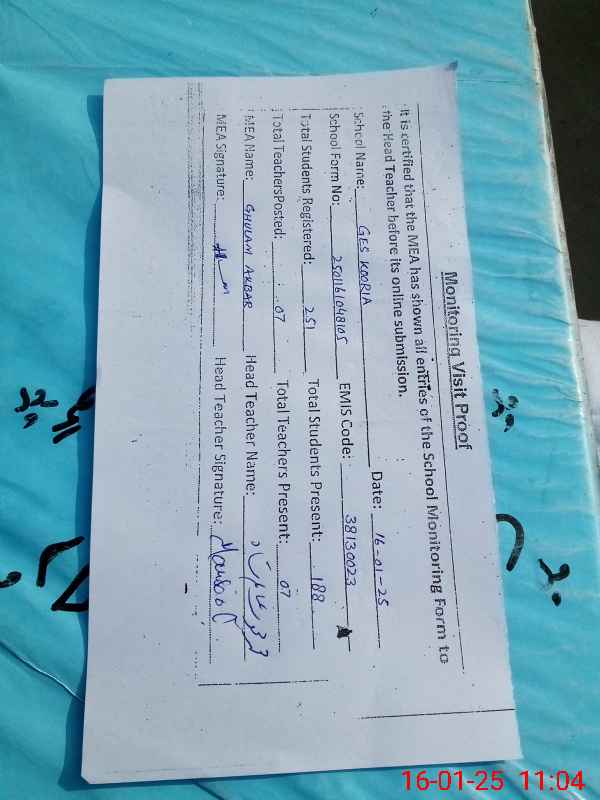 Monitoring Visit Proof
It is certified that the MEA has shown all entries of the School Monitoring Form to
the Head Teacher before its online submission.
School Name: GES KOORIA Date: 16-01-25
School Form No: 2501161048105 EMIS Code: 38130023
Total Students Registered: 251 Total Students Present: 188
Total TeachersPosted: 07 Total Teachers Present: 07
MEA Name: GHULAM AKBAR Head Teacher Name:
MEA Signature: Head Teacher Signature:
16-01-25 11:04